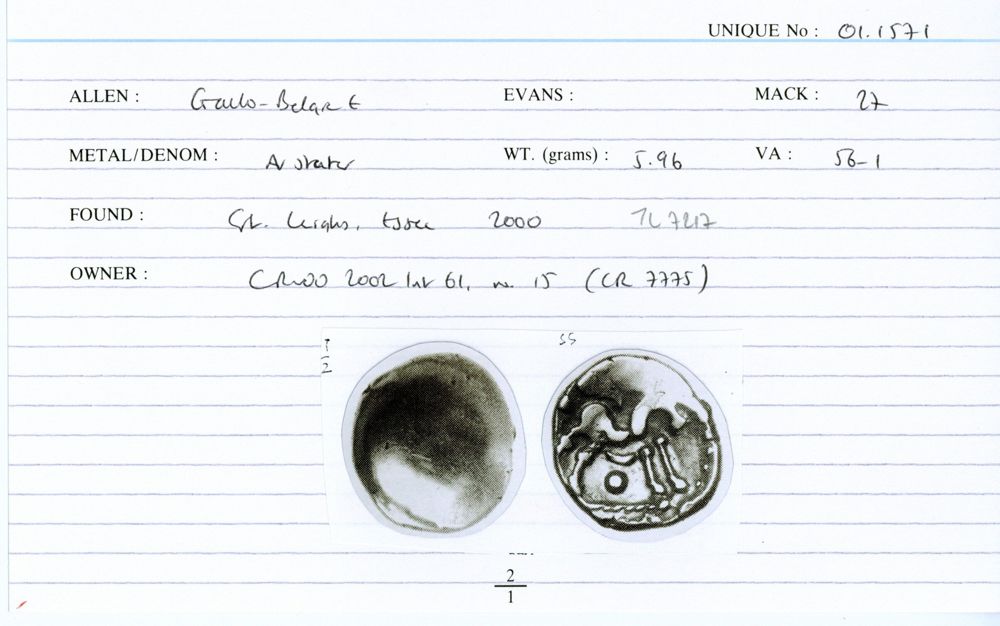 UNIQUE No : 01.1571
ALLEN : Gallo-Belgic E EVANS : MACK : 27
METAL/DENOM : AV stater WT. (grams) : 5.96 VA : 56-1
FOUND : Gt. Leighs, Essex 2000 TL 7217
OWNER : CR 2002 61, no. 15 (CR 7775)
1/2 SS
2
1